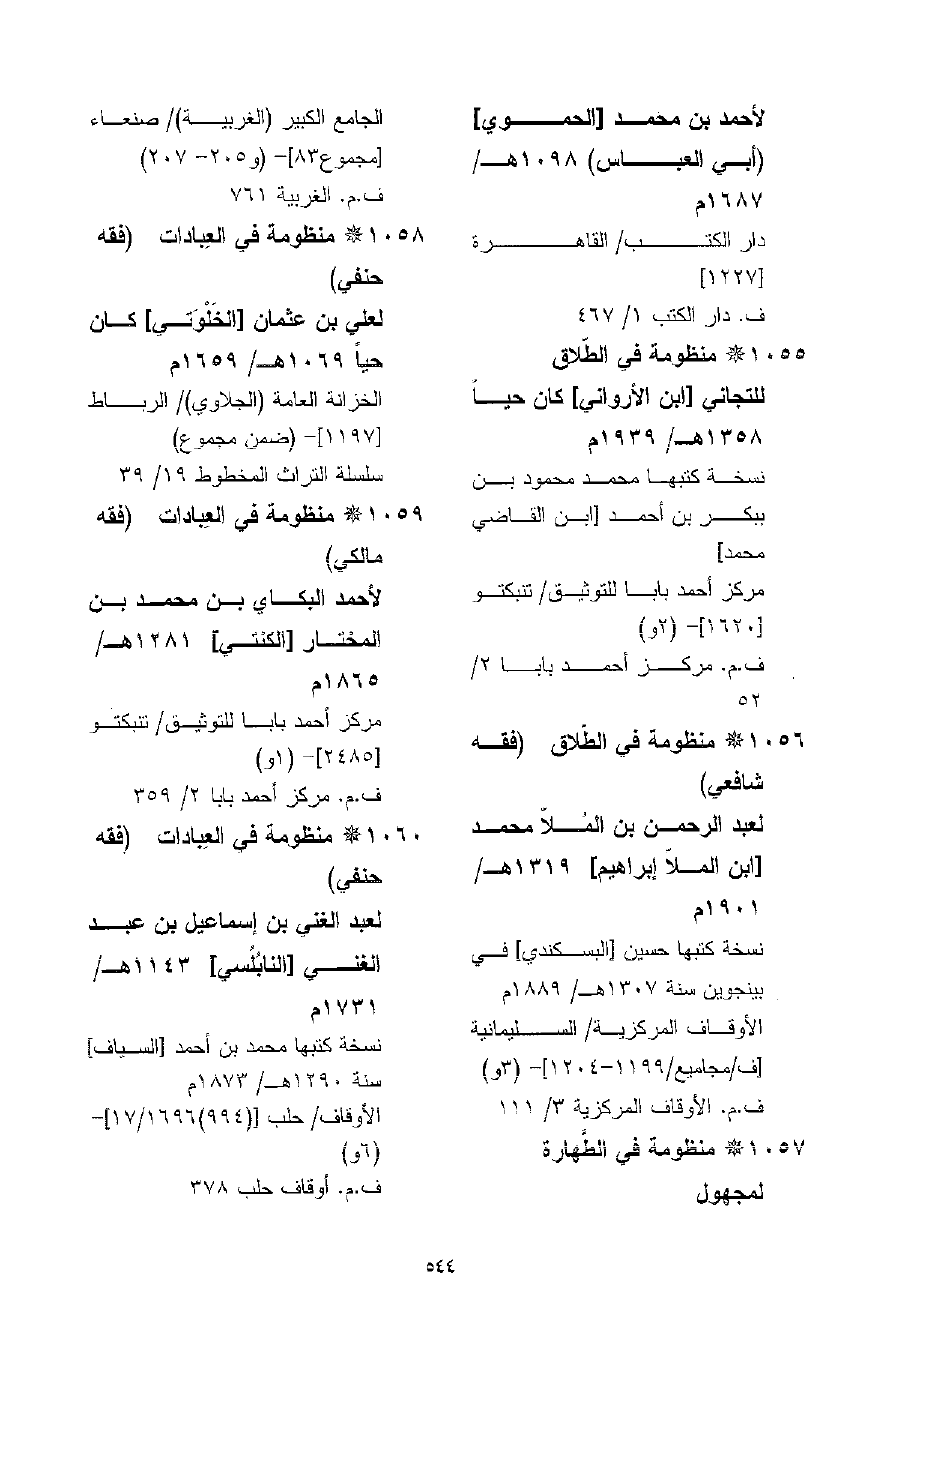 لأحمد بن محمد [الحموي]
(أبي العباس) ١٠٩٨هـ/
١٦٨٧م
دار الكتب/ القاهرة
[١٢٢٧]
ف. دار الكتب ١/ ٤٦٧
١٠٥٥ * منظومة في الطّلاق
للتجاني [ابن الأرواني] كان حيـاً
١٣٥٨هـ/ ١٩٣٩م
نسخة كتبها محمد محمود بن
ببكر بن أحمد [ابن القاضي
محمد]
مركز أحمد بابا للتوثيق/ تنبكتو
[١٦٢٠]- (٢و)
ف.م. مركز أحمد بابا ٢/
٥٢
١٠٥٦ * منظومة في الطّلاق (فقه
شافعي)
لعبد الرحمن بن المُلاّ محمد
[ابن الملاّ إبراهيم] ١٣١٩هـ/
١٩٠١م
نسخة كتبها حسين [البسكندي] في
بينجوين سنة ١٣٠٧هـ/ ١٨٨٩م
الأوقاف المركزية/ السليمانية
[ف/مجاميع/١١٩٩-١٢٠٤]- (٣و)
ف.م. الأوقاف المركزية ٣/ ١١١
١٠٥٧ * منظومة في الطَّهارة
لمجهول
الجامع الكبير (الغربية)/ صنعاء
[مجموع٨٣]- (و٢٠٥- ٢٠٧)
ف.م. الغربية ٧٦١
١٠٥٨ * منظومة في العِبادات (فقه
حنفي)
لعلي بن عثمان [الخَلْوَتي] كان
حياً ١٠٦٩هـ/ ١٦٥٩م
الخزانة العامة (الجلاوي)/ الرباط
[١١٩٧]- (ضمن مجموع)
سلسلة التراث المخطوط ١٩/ ٣٩
١٠٥٩ * منظومة في العِبادات (فقه
مالكي)
لأحمد البكاي بن محمد بن
المختار [الكنتي] ١٢٨١هـ/
١٨٦٥م
مركز أحمد بابا للتوثيق/ تنبكتو
[٢٤٨٥]- (١و)
ف.م. مركز أحمد بابا ٢/ ٣٥٩
١٠٦٠ * منظومة في العِبادات (فقه
حنفي)
لعبد الغني بن إسماعيل بن عبد
الغني [النابُلُسي] ١١٤٣هـ/
١٧٣١م
نسخة كتبها محمد بن أحمد [السياف]
سنة ١٢٩٠هـ/ ١٨٧٣م
الأوقاف/ حلب [(٩٩٤)١٧/١٦٩٦]-
(٦و)
ف.م. أوقاف حلب ٣٧٨
٥٤٤